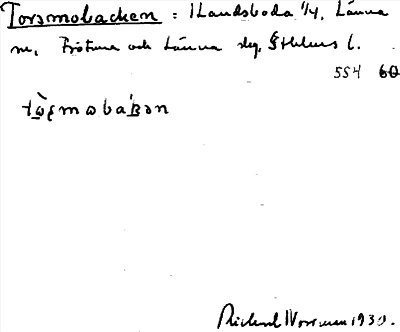 Torsmobacken : 1 Landsboda 1/4, Länna
sn, Frötuna och Länna slg, Sthlms l.
554 60
Rickard Norrman 1930.